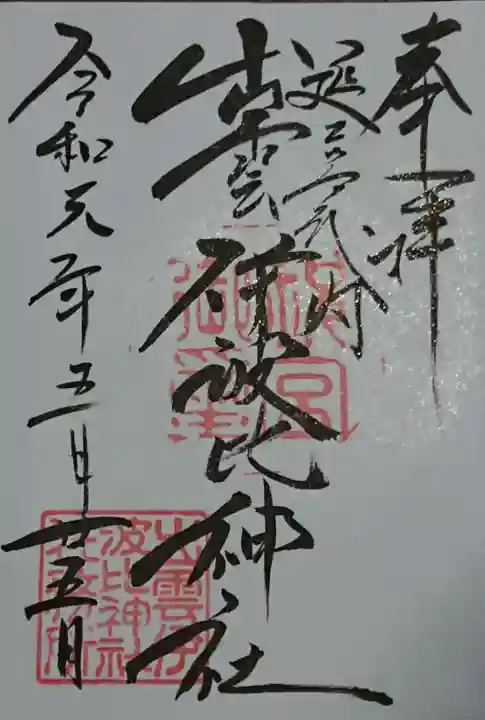 奉拝
延喜式内
出雲伊波比神社
令和元年五月廿五日
出雲伊
波比神社